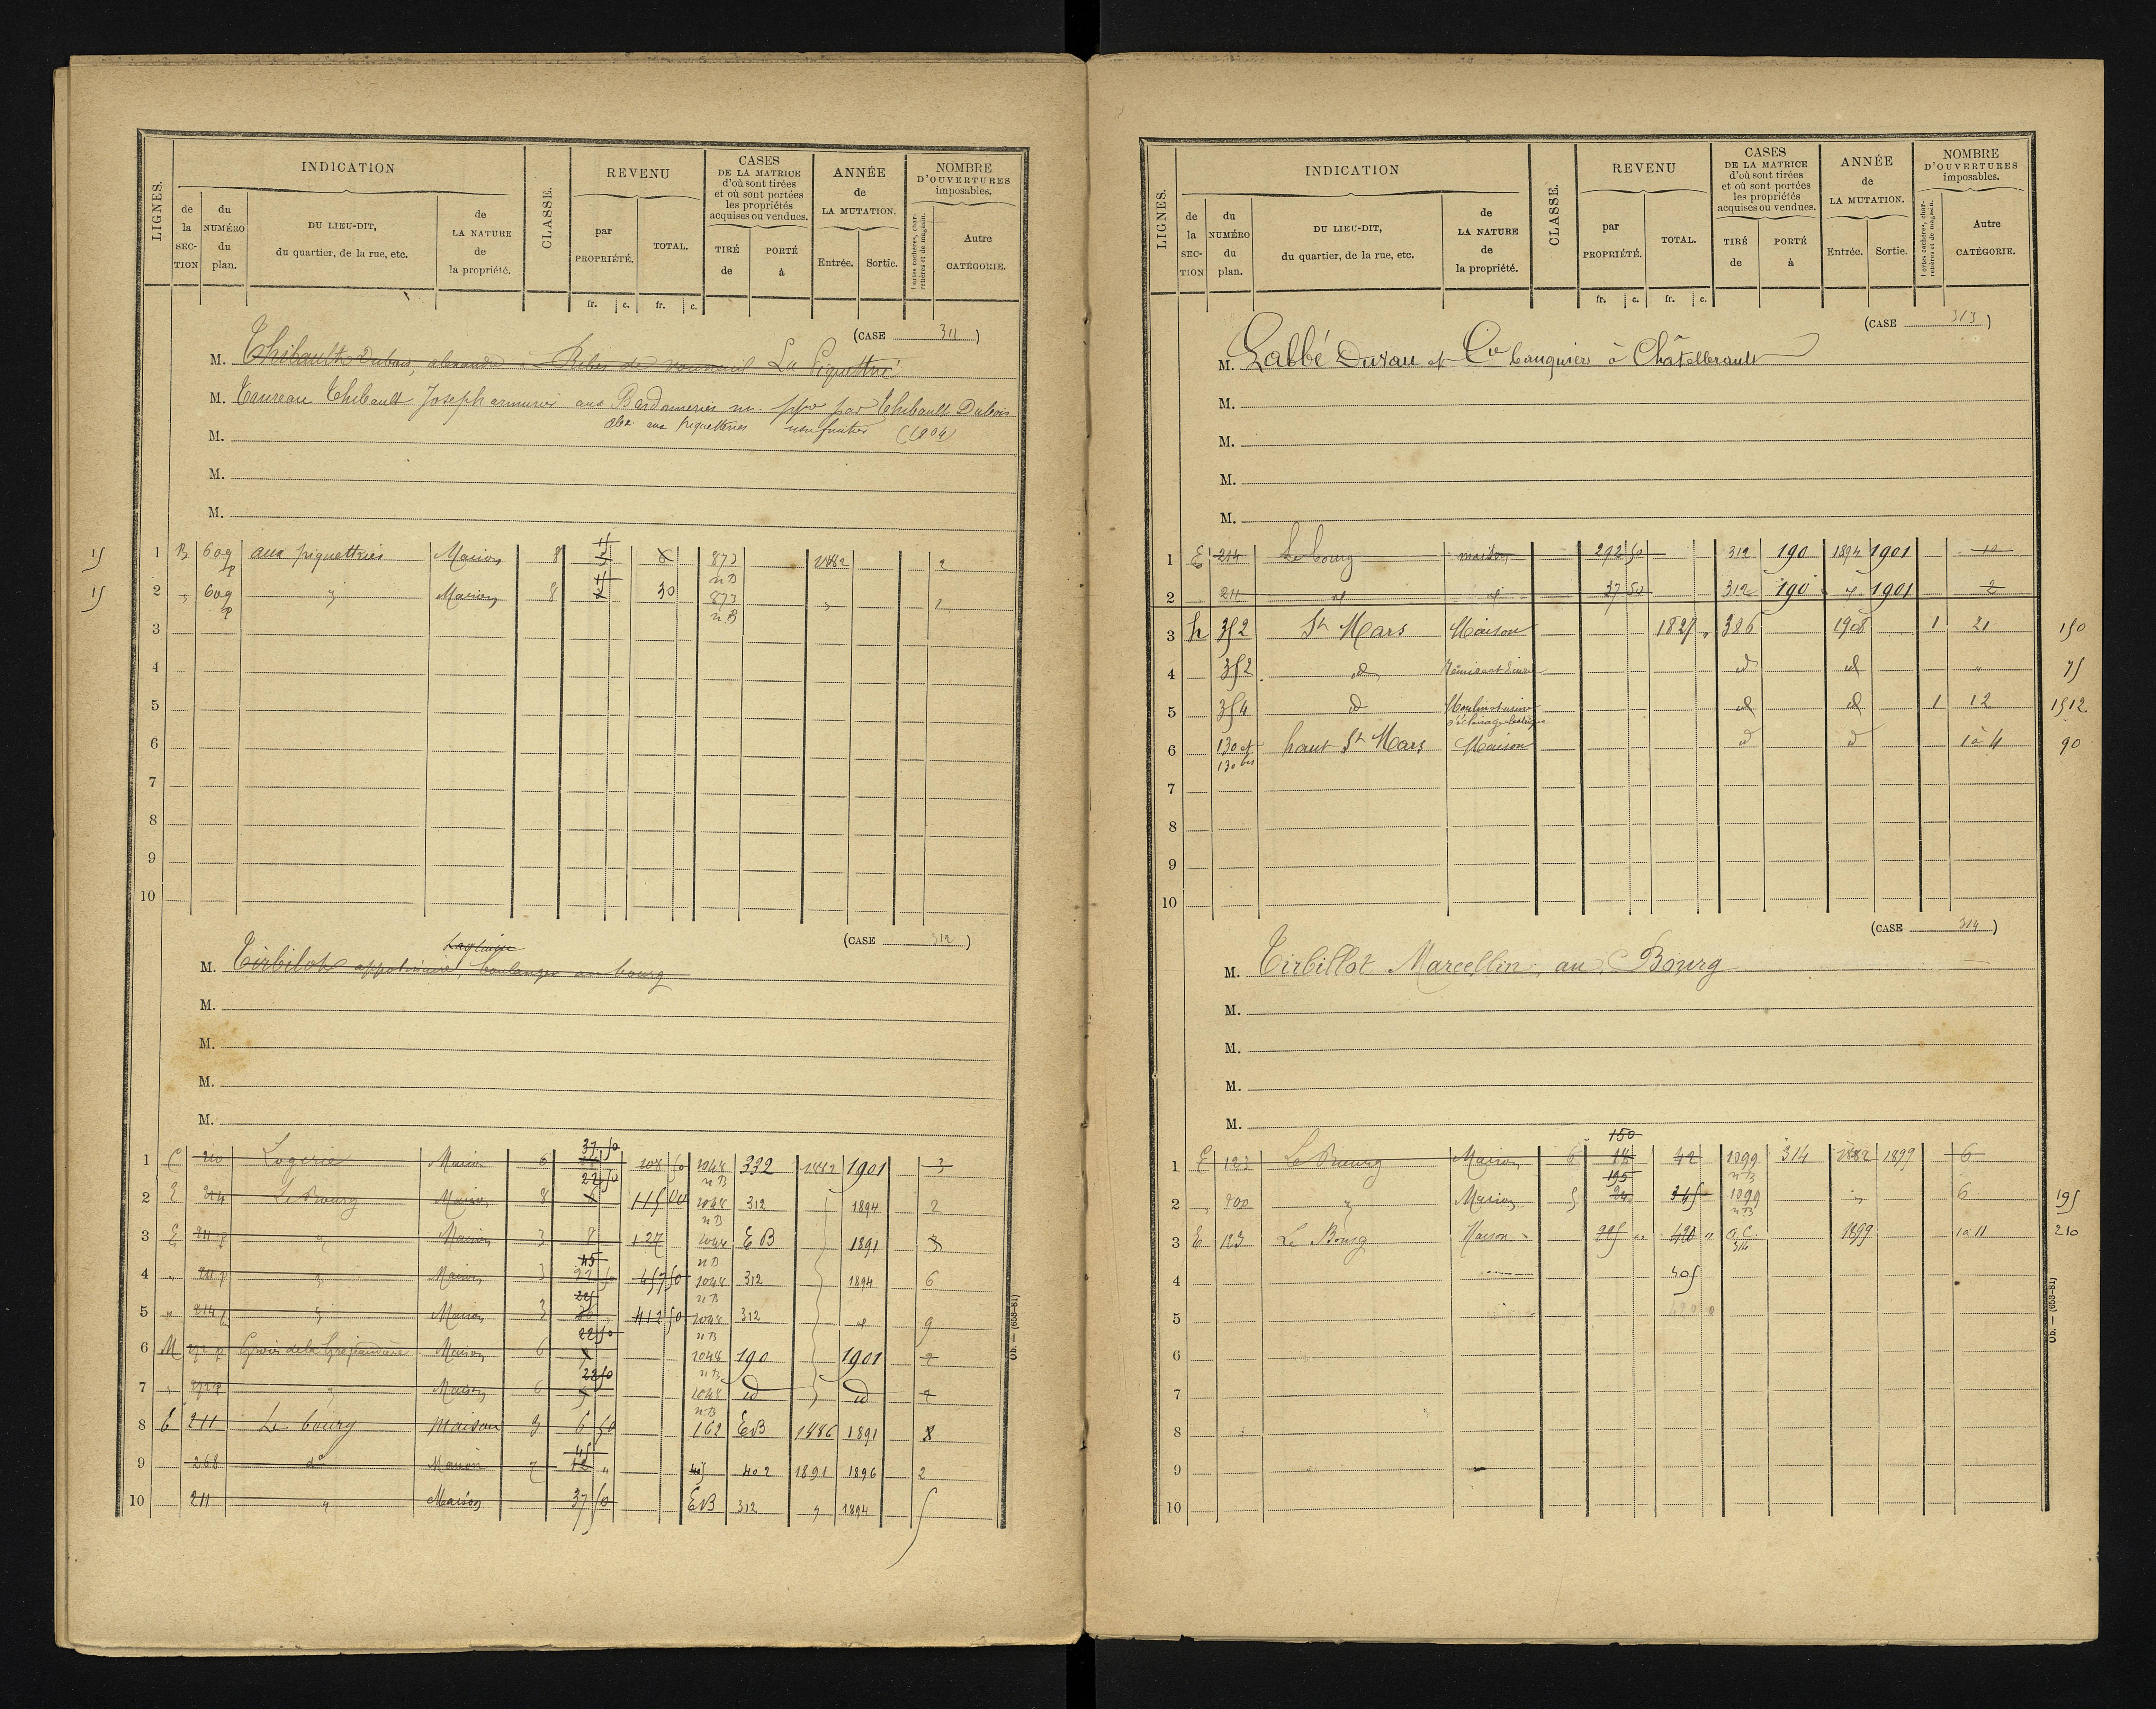 LIGNES. INDICATION CLASSE. REVENU CASES DE LA MATRICE d'où sont tirées et où sont portées les propriétés acquises ou vendues. ANNÉE de LA MUTATION. NOMBRE D'OUVERTURES imposables.
de la SECTION du NUMÉRO du plan. DU LIEU-DIT, du quartier, de la rue, etc. de LA NATURE de la propriété. par PROPRIÉTÉ. TOTAL. TIRÉ de PORTÉ à Entrée. Sortie. Portes cochères, charretières et de magasin. Autre CATÉGORIE.
fr. c. fr. c.
(CASE 311)
M. Thibault Dubois, alexandre La Piquettrie
M. Taureau Thibault Joseph armurier aux Bardonneries nu. ppre par Thibault Dubois
M. alex. aux piquetteries usufruitier (1904)
M.
M.
15 1 B 609 p aux piquettries Maison 8 873 nB 1882 2
15 2 " 609 p " Maison 8 30 873 nB "
3
4
5
6
7
8
9
10
(CASE 312)
M. Tirbilot appolinaire, boulanger au bourg
M.
M.
M.
M.
1 210 Logerie Maison 6 37 50 108 50 1048 nB 332 1882 1901 3
2 E 214 Le Bourg Maison 8 22 50 115 1048 nB 312 1894 2
3 E 211 p " Maison 3 8 127 1048 nB EB 1891 3
4 " 211 p " Maison 3 45 457 50 1048 nB 312 1894 6
5 " 214 p " Maison 3 412 50 1048 nB 312 9
6 M Maison 6 22 50 1048 nB 190 1901 2
7 " " Maison 6 22 50 1048 nB id id 2
8 211 Le bourg Maison 3 6 50 162 EB 1886 1891
9 268 do Maison 7 45 402 1891 1896 2
10 211 " Maison 37 50 EB 312 " 1894
Ob. — (658-81)
LIGNES. INDICATION CLASSE. REVENU CASES DE LA MATRICE d'où sont tirées et où sont portées les propriétés acquises ou vendues. ANNÉE de LA MUTATION. NOMBRE D'OUVERTURES imposables.
de la SECTION du NUMÉRO du plan. DU LIEU-DIT, du quartier, de la rue, etc. de LA NATURE de la propriété. par PROPRIÉTÉ. TOTAL. TIRÉ de PORTÉ à Entrée. Sortie. Portes cochères, charretières et de magasin. Autre CATÉGORIE.
fr. c. fr. c.
(CASE 313)
M. Labbé Durau et Cie banquiers à Châtellerault
M.
M.
M.
M.
1 E 214 Le bourg maison 292 50 312 190 1894 1901 10
2 211 id id 37 50 312 190 id 1901 2
3 h 352 St Mars Maison 1827 " 386 1908 1 21 150
4 352 id id id " 75
5 354 id Moulin et usine d'éclairage électrique id id 1 12 1512
6 130 et 130 bis haut St Mars Maison id id 1 à 4 90
7
8
9
10
(CASE 314)
M. Tirbillot Marcellin, au Bourg
M.
M.
M.
M.
1 E 123 Le Bourg Maison 6 150 42 1099 nB 314 1882 1899 6
2 " 700 " Maison 5 195 24 345 1099 nB " 6 195
3 E 123 Le Bourg Maison 225 " 420 " a.c. 314 1899 1 à 11 210
4 405
5 420
6
7
8
9
10
Ob. — (658-81)